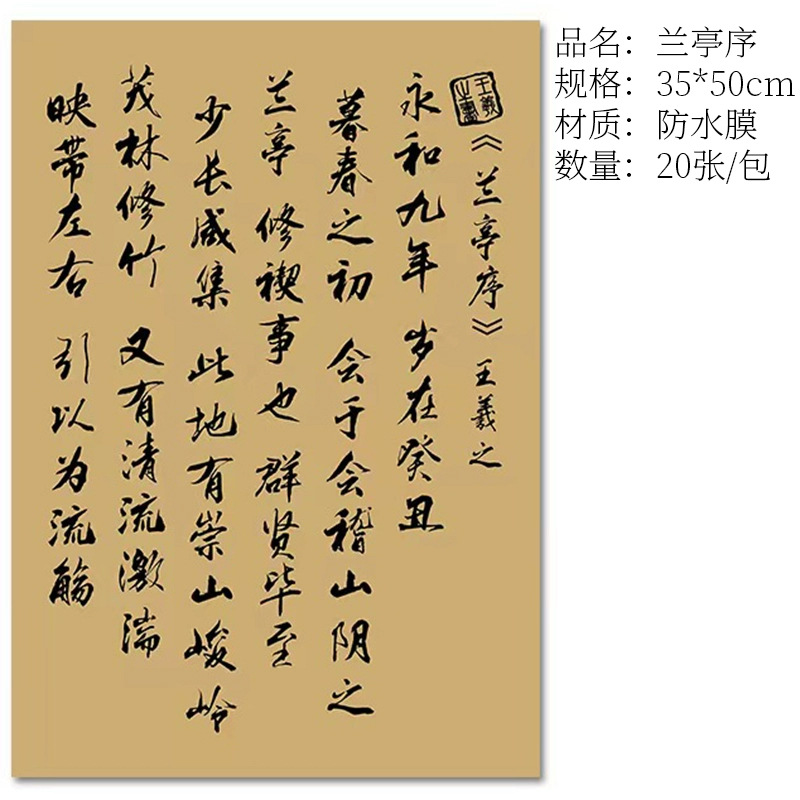 《兰亭序》 王羲之
王羲之書
永和九年 岁在癸丑
暮春之初 会于会稽山阴之
兰亭 修禊事也 群贤毕至
少长咸集 此地有崇山峻岭
茂林修竹 又有清流激湍
映带左右 引以为流觞
品名：兰亭序
规格：35*50cm
材质：防水膜
数量：20张/包